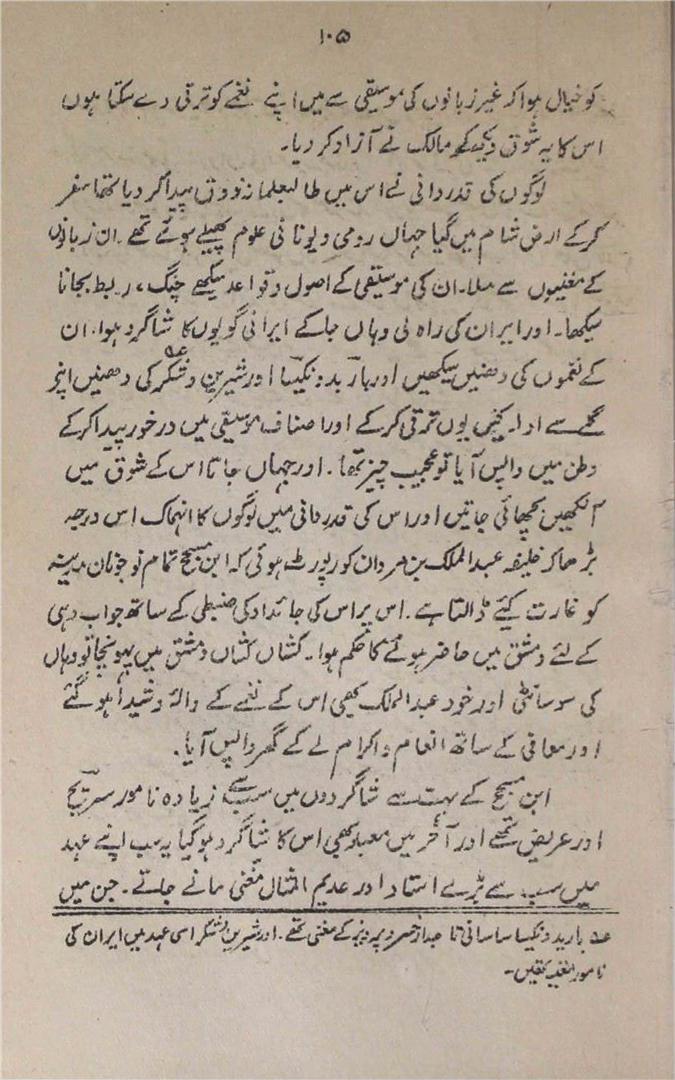 ۱۰۵
کو خیال ہوا کہ غیر زبانوں کی موسیقی سے میں اپنے نغمے کو ترقی دے سکتا ہوں
اس کا یہ شوق دیکھ کر مالک نے آزاد کر دیا۔
لوگوں کی قدردانی نے اس میں طالبعلمانہ ذوق پیدا کر دیا تھا سفر
کرکے ارض شام میں گیا جہاں رومی ویونانی علوم پھیلے ہوئے تھے۔ ان زبانوں
کے مغنیوں سے ملا۔ ان کی موسیقی کے اصول و قواعد سیکھے چنگ، ربط بجانا
سیکھا۔ اور ایران کی راہ لی وہاں جاکے ایرانی گویوں کا شاگرد ہوا۔ ان
کے نغموں کی دھنیں سیکھیں اور باربد ونکیسا اور شیریں وشکر کی دھنیں اپنے
گلے سے ادا کیں یوں ترقی کرکے اور اصناف موسیقی میں درخور پیدا کرکے
وطن میں واپس آیا تو عجیب چیز تھا۔ اور جہاں جاتا اس کے شوق میں
آنکھیں بچھائی جاتیں اور اس کی قدردانی میں لوگوں کا انہماک اس درجہ
بڑھا کہ خلیفہ عبدالملک بن مروان کو رپورٹ ہوئی کہ ابن مسجح تمام نوجوانان مدینہ
کو غارت کیے ڈالتا ہے۔ اس پر اس کی جائداد کی ضبطی کے ساتھ جواب دہی
کے لئے دمشق میں حاضر ہونے کا حکم ہوا۔ کشاں کشاں دمشق میں پہونچا تو وہاں
کی سوسائٹی اور خود عبدالملک بھی اس کے نغمے کے والۂ وشیدا ہو گئے
اور معافی کے ساتھ انعام و اکرام لے کے گھر واپس آیا۔
ابن مسجح کے بہت سے شاگردوں میں سب سے زیادہ نامور سریج
اور عریض تھے اور آخر میں معبد بھی اس کا شاگرد ہو گیا یہ سب اپنے عہد
میں سب سے بڑے استاد اور عدیم المثال مغنی مانے جاتے۔ جن میں
عہ باربد ونکیسا ساسانی تاجدار خسرو پرویز کے مغنی تھے۔ اور شیریں وشکر اسی عہد میں ایران کی
نامور مغنیہ تھیں۔